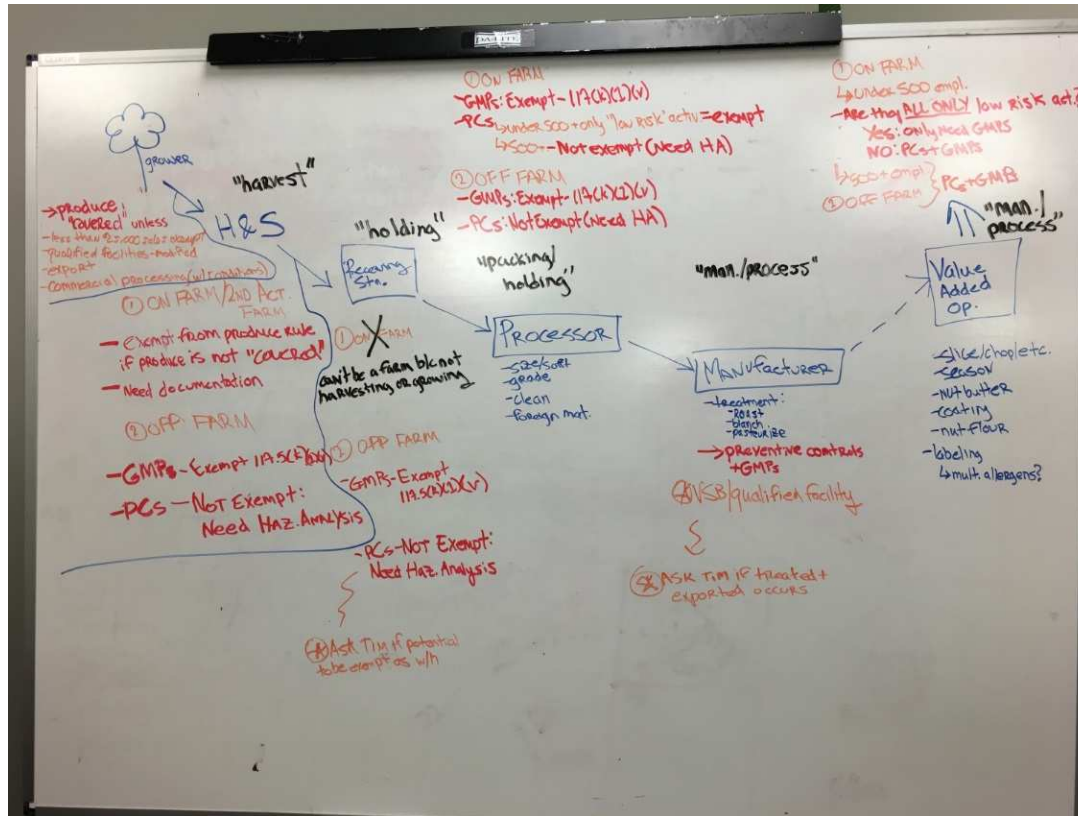 DA-LITE
grower
→ produce
"covered" unless
- less than 25,000 sales exempt
- qualified facilities - modified
- export
- commercial processing (w/ conditions)
"harvest"
H&S
① ON FARM/2ND ACT. FARM
- Exempt from produce rule
if produce is not "covered"
- Need documentation
② OFF FARM
- GMPs - Exempt 117.5(k)(1)(v)
- PCs - NOT EXEMPT:
Need Haz. Analysis
"holding"
Receiving
Stn.
① ON FARM
X
can't be a farm b/c not
harvesting or growing
② OFF FARM
- GMPs - Exempt
117.5(k)(1)(v)
- PCs - NOT Exempt:
Need Haz. Analysis
ASK TIM if potential
to be exempt as w/h
① ON FARM
- GMPs: Exempt - 117(k)(1)(v)
- PCs ↳ under 500 + only "low risk" activ = exempt
↳ 500+ - Not exempt (Need HA)
② OFF FARM
- GMPs: Exempt - 117(k)(1)(v)
- PCs: NOT Exempt (Need HA)
"packing/
holding"
PROCESSOR
- size/sort
- grade
- clean
- foreign mat.
"man./process"
MANUFACTURER
- treatment:
- roast
- blanch
- pasteurize
→ preventive controls
+ GMPs
VSB/qualified facility
ASK TIM if treated +
exported occurs
① ON FARM
↳ under 500 empl.
- Are they ALL ONLY low risk act.?
Yes: only need GMPs
NO: PCs + GMPs
↳ 500+ empl.
② OFF FARM } PCs + GMP
"man./
process"
Value
Added
Op.
- slice/chop/etc.
- season
- nut butter
- coating
- nut flour
- labeling
↳ mult. allergens?